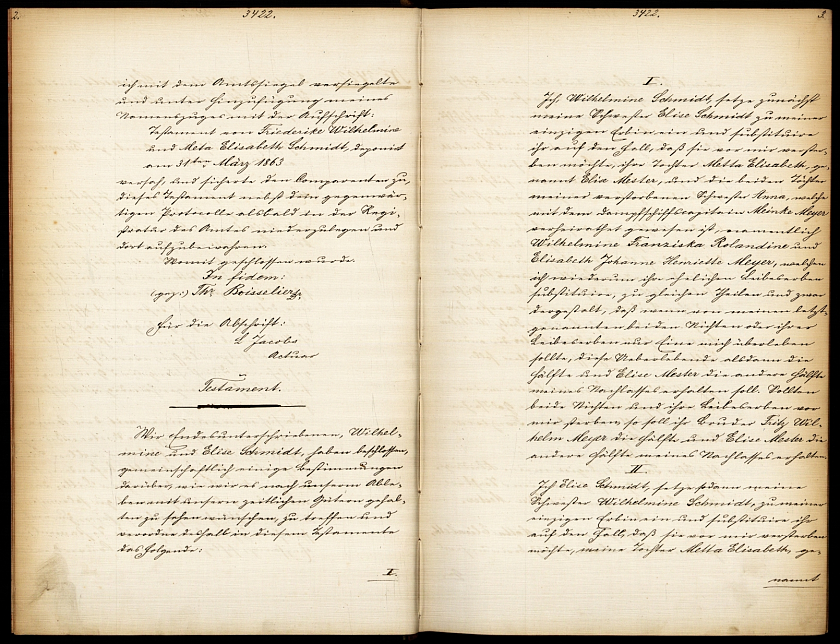 2.
3422.
ich mit dem Amtssiegel versiegelte
und unter Hinzufügung meines
Namenszuges mit der Aufschrift:
Testament von Friederike Wilhelmine
und Meta Elisabeth Schmidt, deponirt
am 31ten März 1863
versah, und sicherte den Comparenten zu,
dieses Testament nebst dem gegenwär-
tigen Protocolle alsbald in der Regi-
stratur des Amtes niederzulegen und
dort aufzubewahren.
Womit geschlossen wurde.
In fidem:
(gez:) Thr Boisselier
Für die Abschrift:
L Jacobs
Actuar
Testament.
Wir Endesunterschriebenen, Wilhel-
mine und Elise Schmidt, haben beschlossen,
gemeinschaftlich einige Bestimmungen
darüber, wie wir es nach unserm Able-
ben mit unsern zeitlichen Gütern gehal-
ten zu sehen wünschen, zu treffen und
verordnen deshalb in diesem Testamente
das Folgende:
I.
3422.
3.
I.
Ich Wilhelmine Schmidt, setze zunächst
meine Schwester Elise Schmidt zu meiner
einzigen Erbin ein und substituire
ihr auf den Fall, daß sie vor mir verster-
ben möchte, ihre Tochter Metta Elisabeth, ge-
nannt Elise Mester, und die beiden Töchter
meiner verstorbenen Schwester Anna, welche
mit dem Dampfschiffscapitain Meinke Meyer
verheirathet gewesen ist, namentlich
Wilhelmine Franziska Rolandine und
Elisabeth Johanne Henriette Meyer, welchen
ich wiederum ihre ehelichen Leibeserben
substituire, zu gleichen Theilen und zwar
dergestalt, daß wenn von meinen letzt-
genannten beiden Nichten oder ihrer
Leibeserben nur Eine mich überleben
sollte, diese Ueberlebende alsdann die
Hälfte und Elise Mester die andere Hälfte
meines Nachlasses erhalten soll. Sollten
beide Nichten und ihre Leibeserben vor
mir sterben, so soll ihr Bruder Fritz Wil-
helm Meyer die Hälfte und Elise Mester die
andere Hälfte meines Nachlasses erhalten.
II.
Ich Elise Schmidt, setze sodann meine
Schwester Wilhelmine Schmidt, zu meiner
einzigen Erbin ein und substituire ihr
auf den Fall, daß sie vor mir versterben
möchte, meine Tochter Metta Elisabeth, ge-
nannt